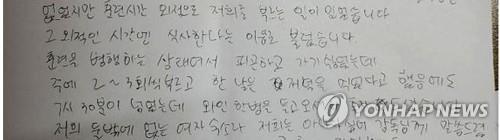 없었지만 훈련시간 외적으로 저희를 부르는 일이 있었습니다
그 외적인 시간엔 식사한다는 이유로 불렀습니다
훈련을 병행하는 상태에서 피곤하고 가기 싫었는데
주에 2~3회씩 부르고 한 날은 저녁을 먹었다고 했음에도
7시 30분이 넘었는데 와인 한병을 들고오
저희 밖에 없는 여자숙소라 저희는
YONHAP NEWS